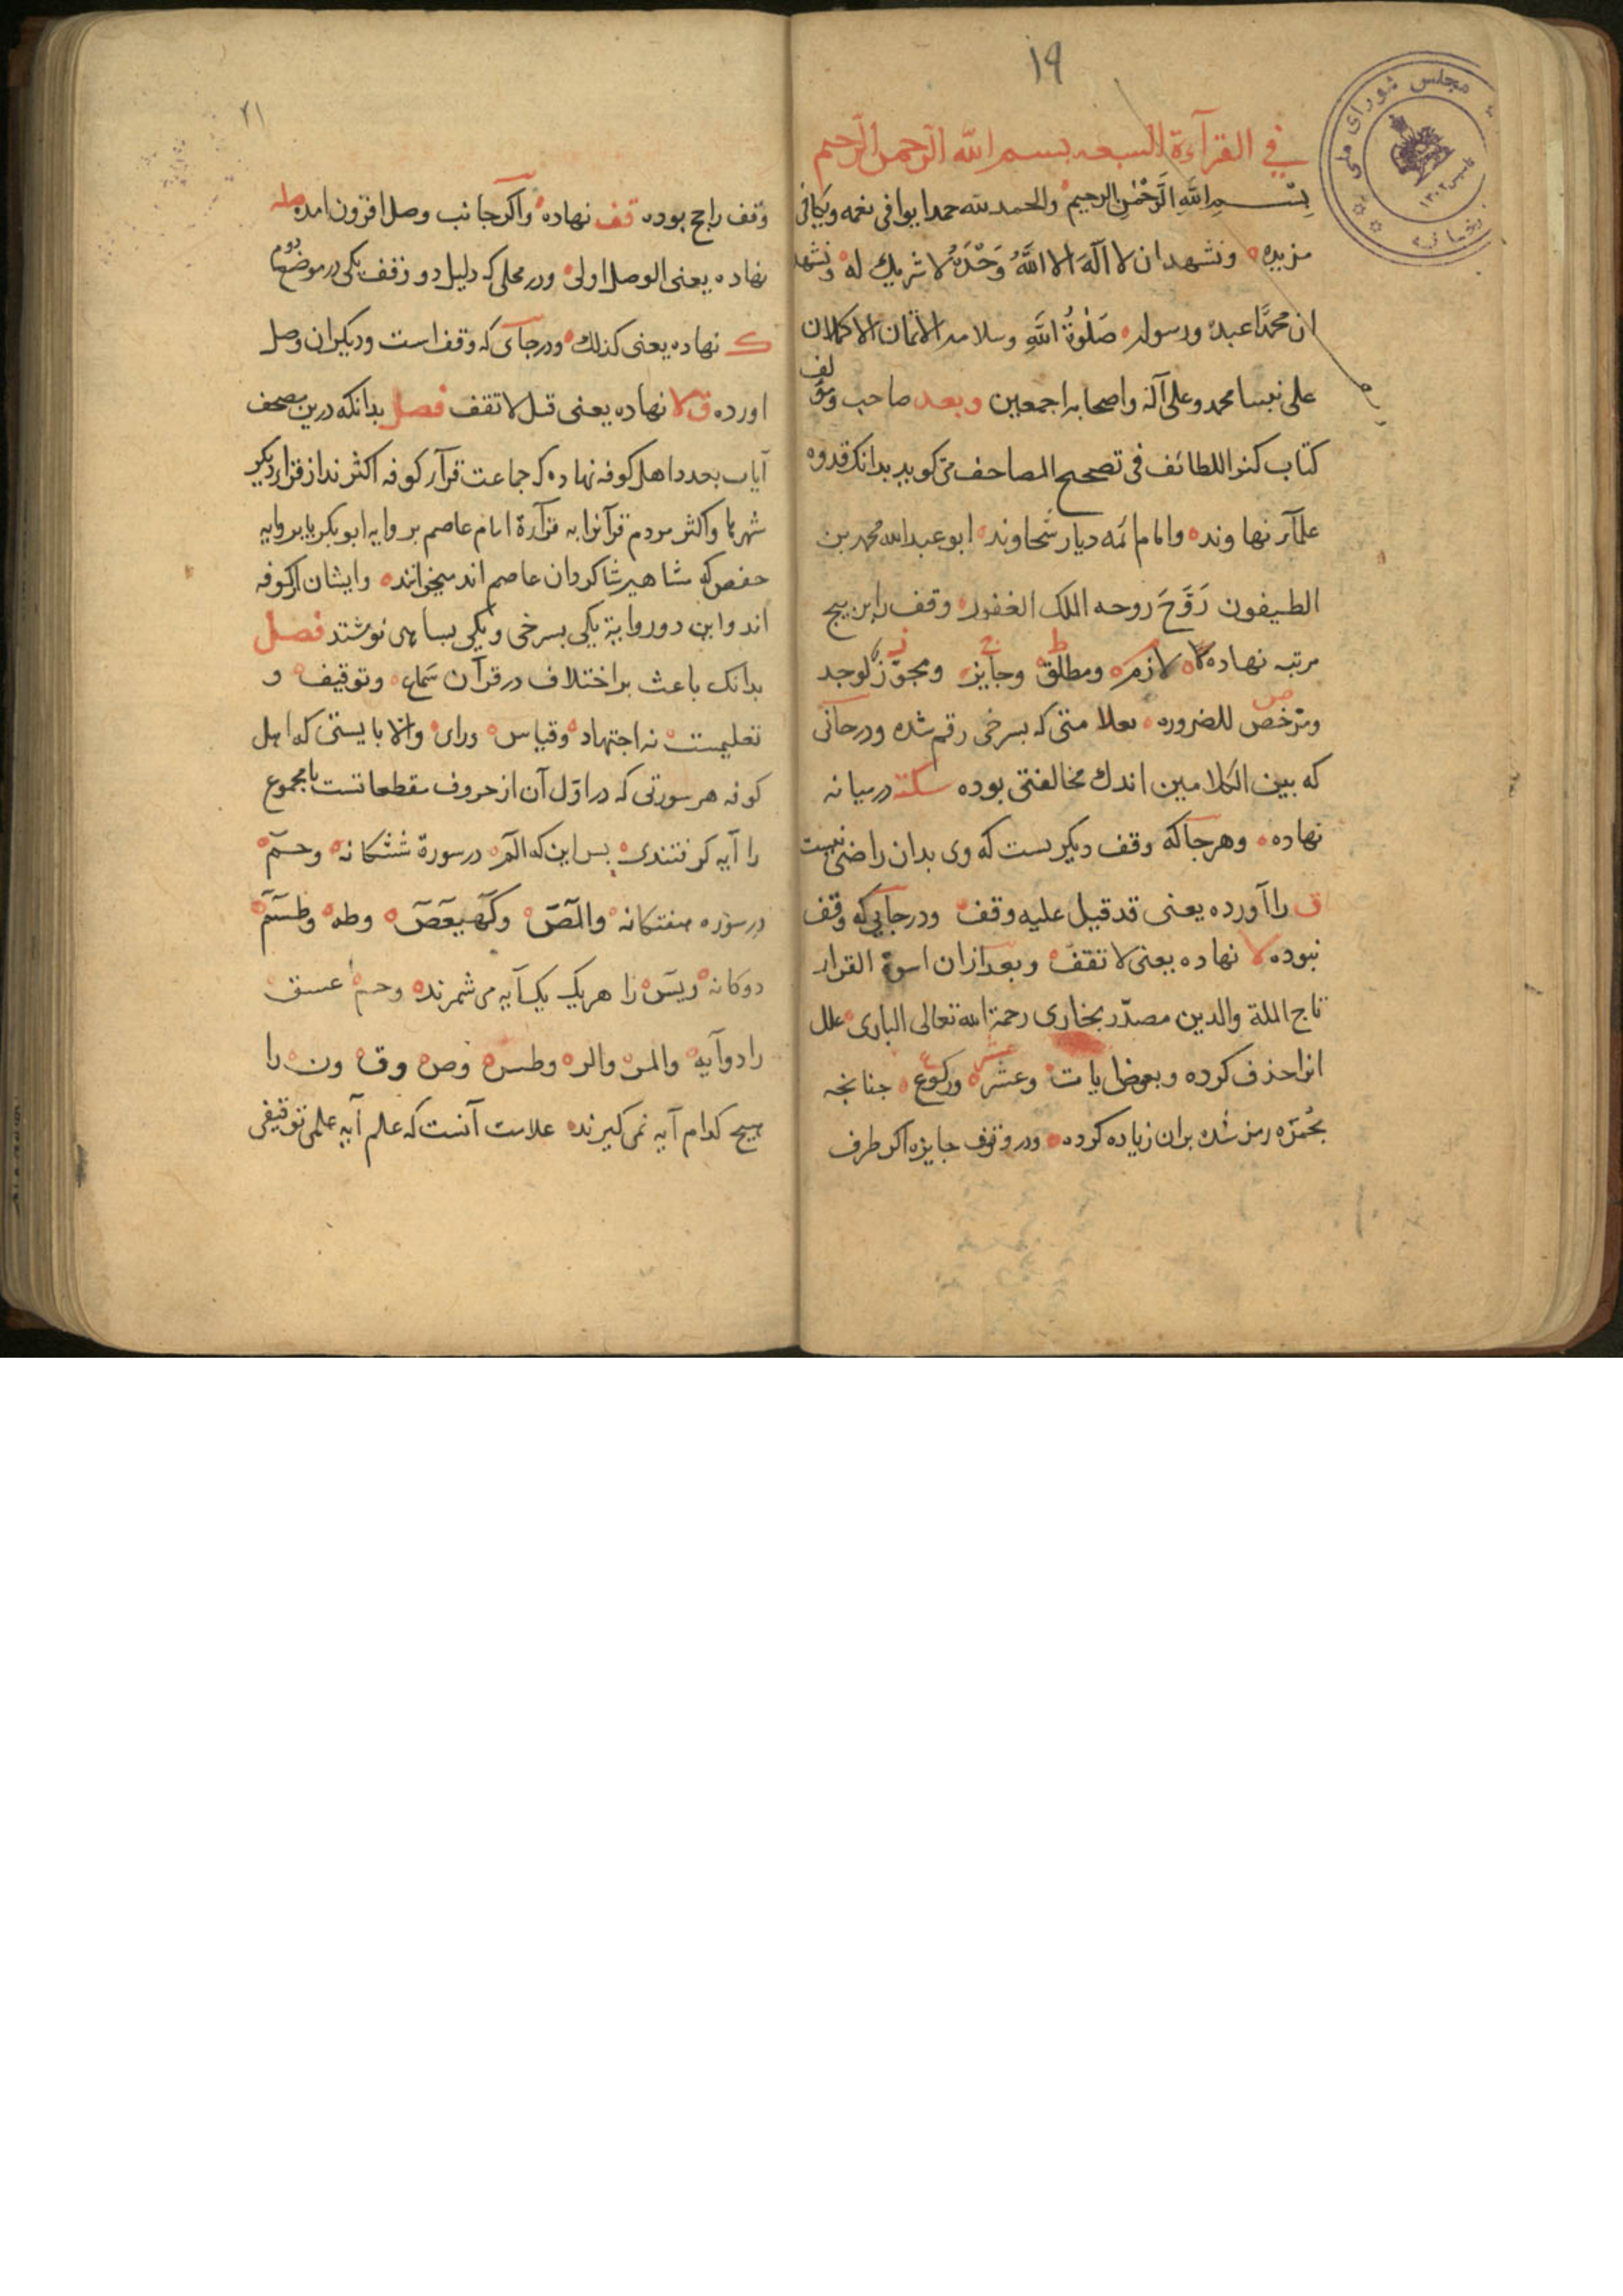 ۱۹
مجلس شورای ملی
تاسیس ۱۳۰۲
في القرآءة السبعه بسم الله الرحمن الرحيم
بِسْمِ اللَّهِ الرَّحْمٰنِ الرحيم والحمد لله حمدا يوافى نعمه ويكافى
مزيده ونشهد ان لا اله الا اللَّهُ وَحْدَهُ لا شريك له ونشهد
ان محمدًا عبده ورسوله صَلٰوةُ اللَّهِ وسلامه الاتمان الاكملان
على نبينا محمد وعلى آله واصحابه اجمعين وبعد صاحب ومؤلف
كتاب كنز اللطائف فى تصحيح المصاحف می كويد بدانك قدوه
علمآء نهاوند وامام ائمه ديار سجاوند ابو عبد الله محمد بن
الطيفون رَوَّحَ روحه الملك الغفور وقف را بر پنج
مرتبه نهاده لازم ومطلق وجايز ومجوّز لوجه
ومرّخص للضروره بعلامتى كه بسرخى رقم شده ودرجائى
كه بين الكلامين اندك مخالفتى بوده سكته درميانه
نهاده وهرجا كه وقف ديكريست كه وى بدان راضى نيست
ق را آورده يعنى قد قيل عليه وقف ودرجايى كه وقف
نبوده لا نهاده يعنى لا تقف وبعد ازان اسوة القرار
تاج الملة والدين مصدّر بخارى رحمة الله تعالى البارى علل
انرا حذف كرده وبعوض ايات وعشر وركوع چنانچه
بحُمرَه رمز شده بران زياده كرده ودر وقوف جايزه اكر طرف
۲۱
وقف راجح بوده قف نهاده واكر جانب وصل افزون امده صله
نهاده يعنى الوصل اولى ودر محلى كه دليل دو وقف يكى در موضع دوم
ك نهاده يعنى كذلك ودرجاى كه وقف است وديكران وصل
اورده ق لا نهاده يعنى قيل لا تقف فصل بدانكه درين مصحف
آيات بعدد اهل كوفه نهاده كه جماعت قرآء كوفه اكثرند از قراء ديكر
شهرها واكثر مردم قرآنرا به قرآءة امام عاصم بروايه ابو بكر يا بروايه
حفص كه مشاهير شاكردان عاصم اند ميخوانند وايشان از كوفه
اند واين دو رواية يكى بسرخى ويكى بسياهى نوشتند فصل
بدانك باعث بر اختلاف در قرآن سماع وتوقيف و
تعليمست نه اجتهاد وقياس وراى والا بايستى كه اهل
كوفه هر سورتى كه در اوّل آن از حروف مقطعاتست با مجموع
را آيه كرفتندى پس اين كه الٓمٓ در سورة ششكانه وحمٓ
در سوره هفتكانه والٓمٓصٓ وكٓهيعٓصٓ وطه وطسٓمٓ
دوكانه ويسٓ را هر يك يك آيه مى شمرند وحم عسق
را دو آيه والمر والر وطس وص وق ون را
هيچ كدام آيه نمى كيرند علامت آنست كه علم آيه علمى توقيفى